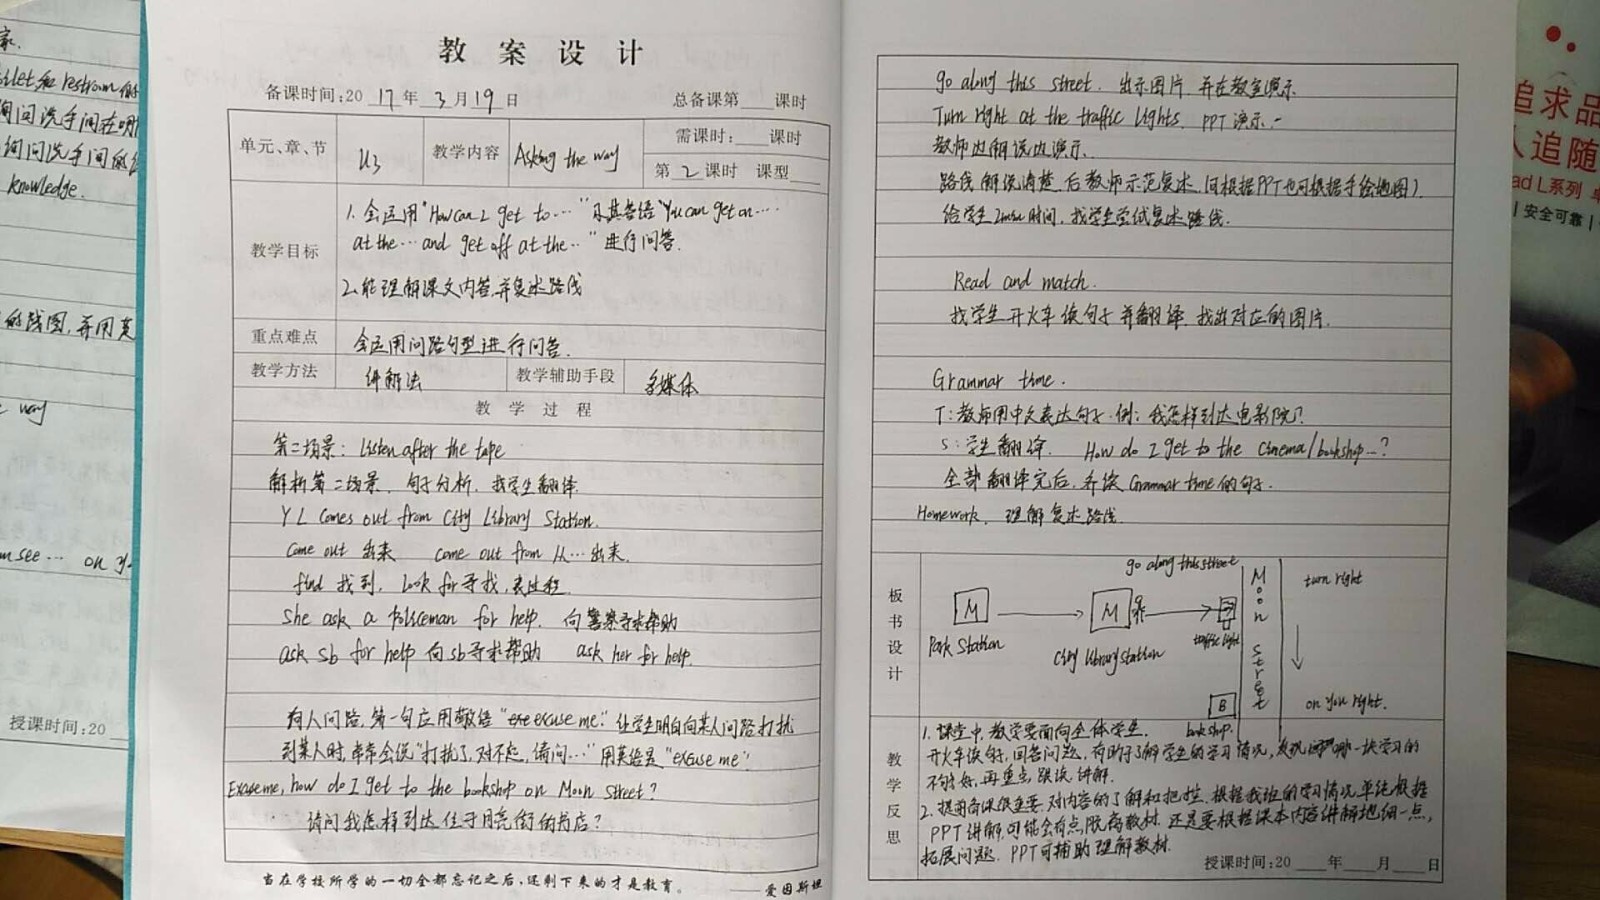 家.
和 restroom
询问洗手间在哪
询问洗手间
knowledge.
的线图,并用英
way
see… on y
授课时间:20
教案设计
备课时间:2017年3月19日
总备课第 课时
单元、章、节
U3
教学内容
Asking the way
需课时: 课时
第2课时 课型
教学目标
1. 会运用"How can I get to …"及其答语"You can get on …
at the … and get off at the …"进行问答.
2.能理解课文内容,并复述路线
重点难点
会运用问路句型进行问答.
教学方法
讲解法
教学辅助手段
多媒体
教学过程
第二场景: Listen after the tape
解析第二场景. 句子分析, 找学生翻译.
YL comes out from City Library Station.
come out 出来 come out from 从…出来.
find 找到, look for 寻找,表过程
She ask a policeman for help. 向警察寻求帮助
ask sb for help 向sb寻求帮助 ask her for help.
有人问路,第一句应用敬语 "excuse me". 让学生明白向某人问路打扰
到某人时,常常会说"打扰了,对不起,请问…"用英语是"excuse me".
Excuse me, how do I get to the bookshop on Moon Street?
请问我怎样到达位于月亮街的书店?
当在学校所学的一切全都忘记之后,还剩下来的才是教育。 ——爱因斯坦
go along this street. 出示图片,并在教室演示
Turn right at the traffic lights. PPT演示.
教师边解说边演示.
路线解说清楚后教师示范复述.(可根据PPT也可根据手绘地图)
给学生2min时间,找学生尝试复述路线.
Read and match.
找学生开火车读句子并翻译.找出对应的图片.
Grammar time.
T:教师用中文表达句子.例:我怎样到达电影院?
S:学生翻译. How do I get to the cinema/bookshop…?
全部翻译完后,齐读Grammar time的句子.
Homework. 理解复述路线
板书设计
go along this street
M
Park Station
M
City library station
traffic light
Moon Street
turn right
B
bookshop.
on you right.
教学反思
1. 课堂中,教学要面向全体学生.
开火车读句子,回答问题,有助于了解学生的学习情况,发现哪一块学习的
不够好,再重点跟读,讲解.
2. 提前备课很重要.对内容的了解和把控.根据我班的学习情况,单纯根据
PPT讲解,可能会有点脱离教材.还是要根据课本内容讲解地细一点,
拓展问题. PPT可辅助理解教材.
授课时间:20 年 月 日
追求品
人追随
ad L系列
安全可靠